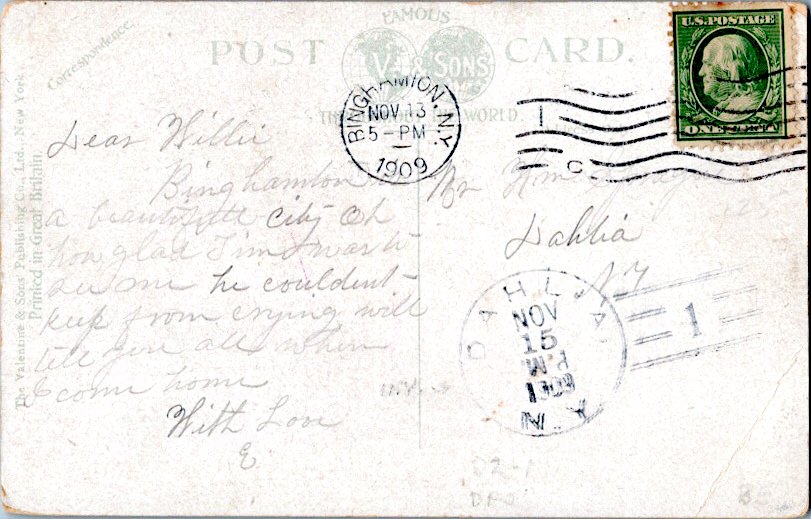 FAMOUS
POST CARD.
V & SONS
THE WORLD.
Correspondence.
The Valentine & Sons Publishing Co., Ltd., New York.
Printed in Great Britain.
U.S. POSTAGE
ONE CENT
BINGHAMTON, N.Y.
NOV 13
5-PM
1909
1
C
Dear Willie
Binghamton is
a beautifull city Oh
how glad Jim was to
see me he couldent
keep from crying will
tell you all when
I come home
With Love
E.
Mr Wm
Dahlia
N.Y
DAHLIA
NOV
15
1909
N.Y.
1
DPO